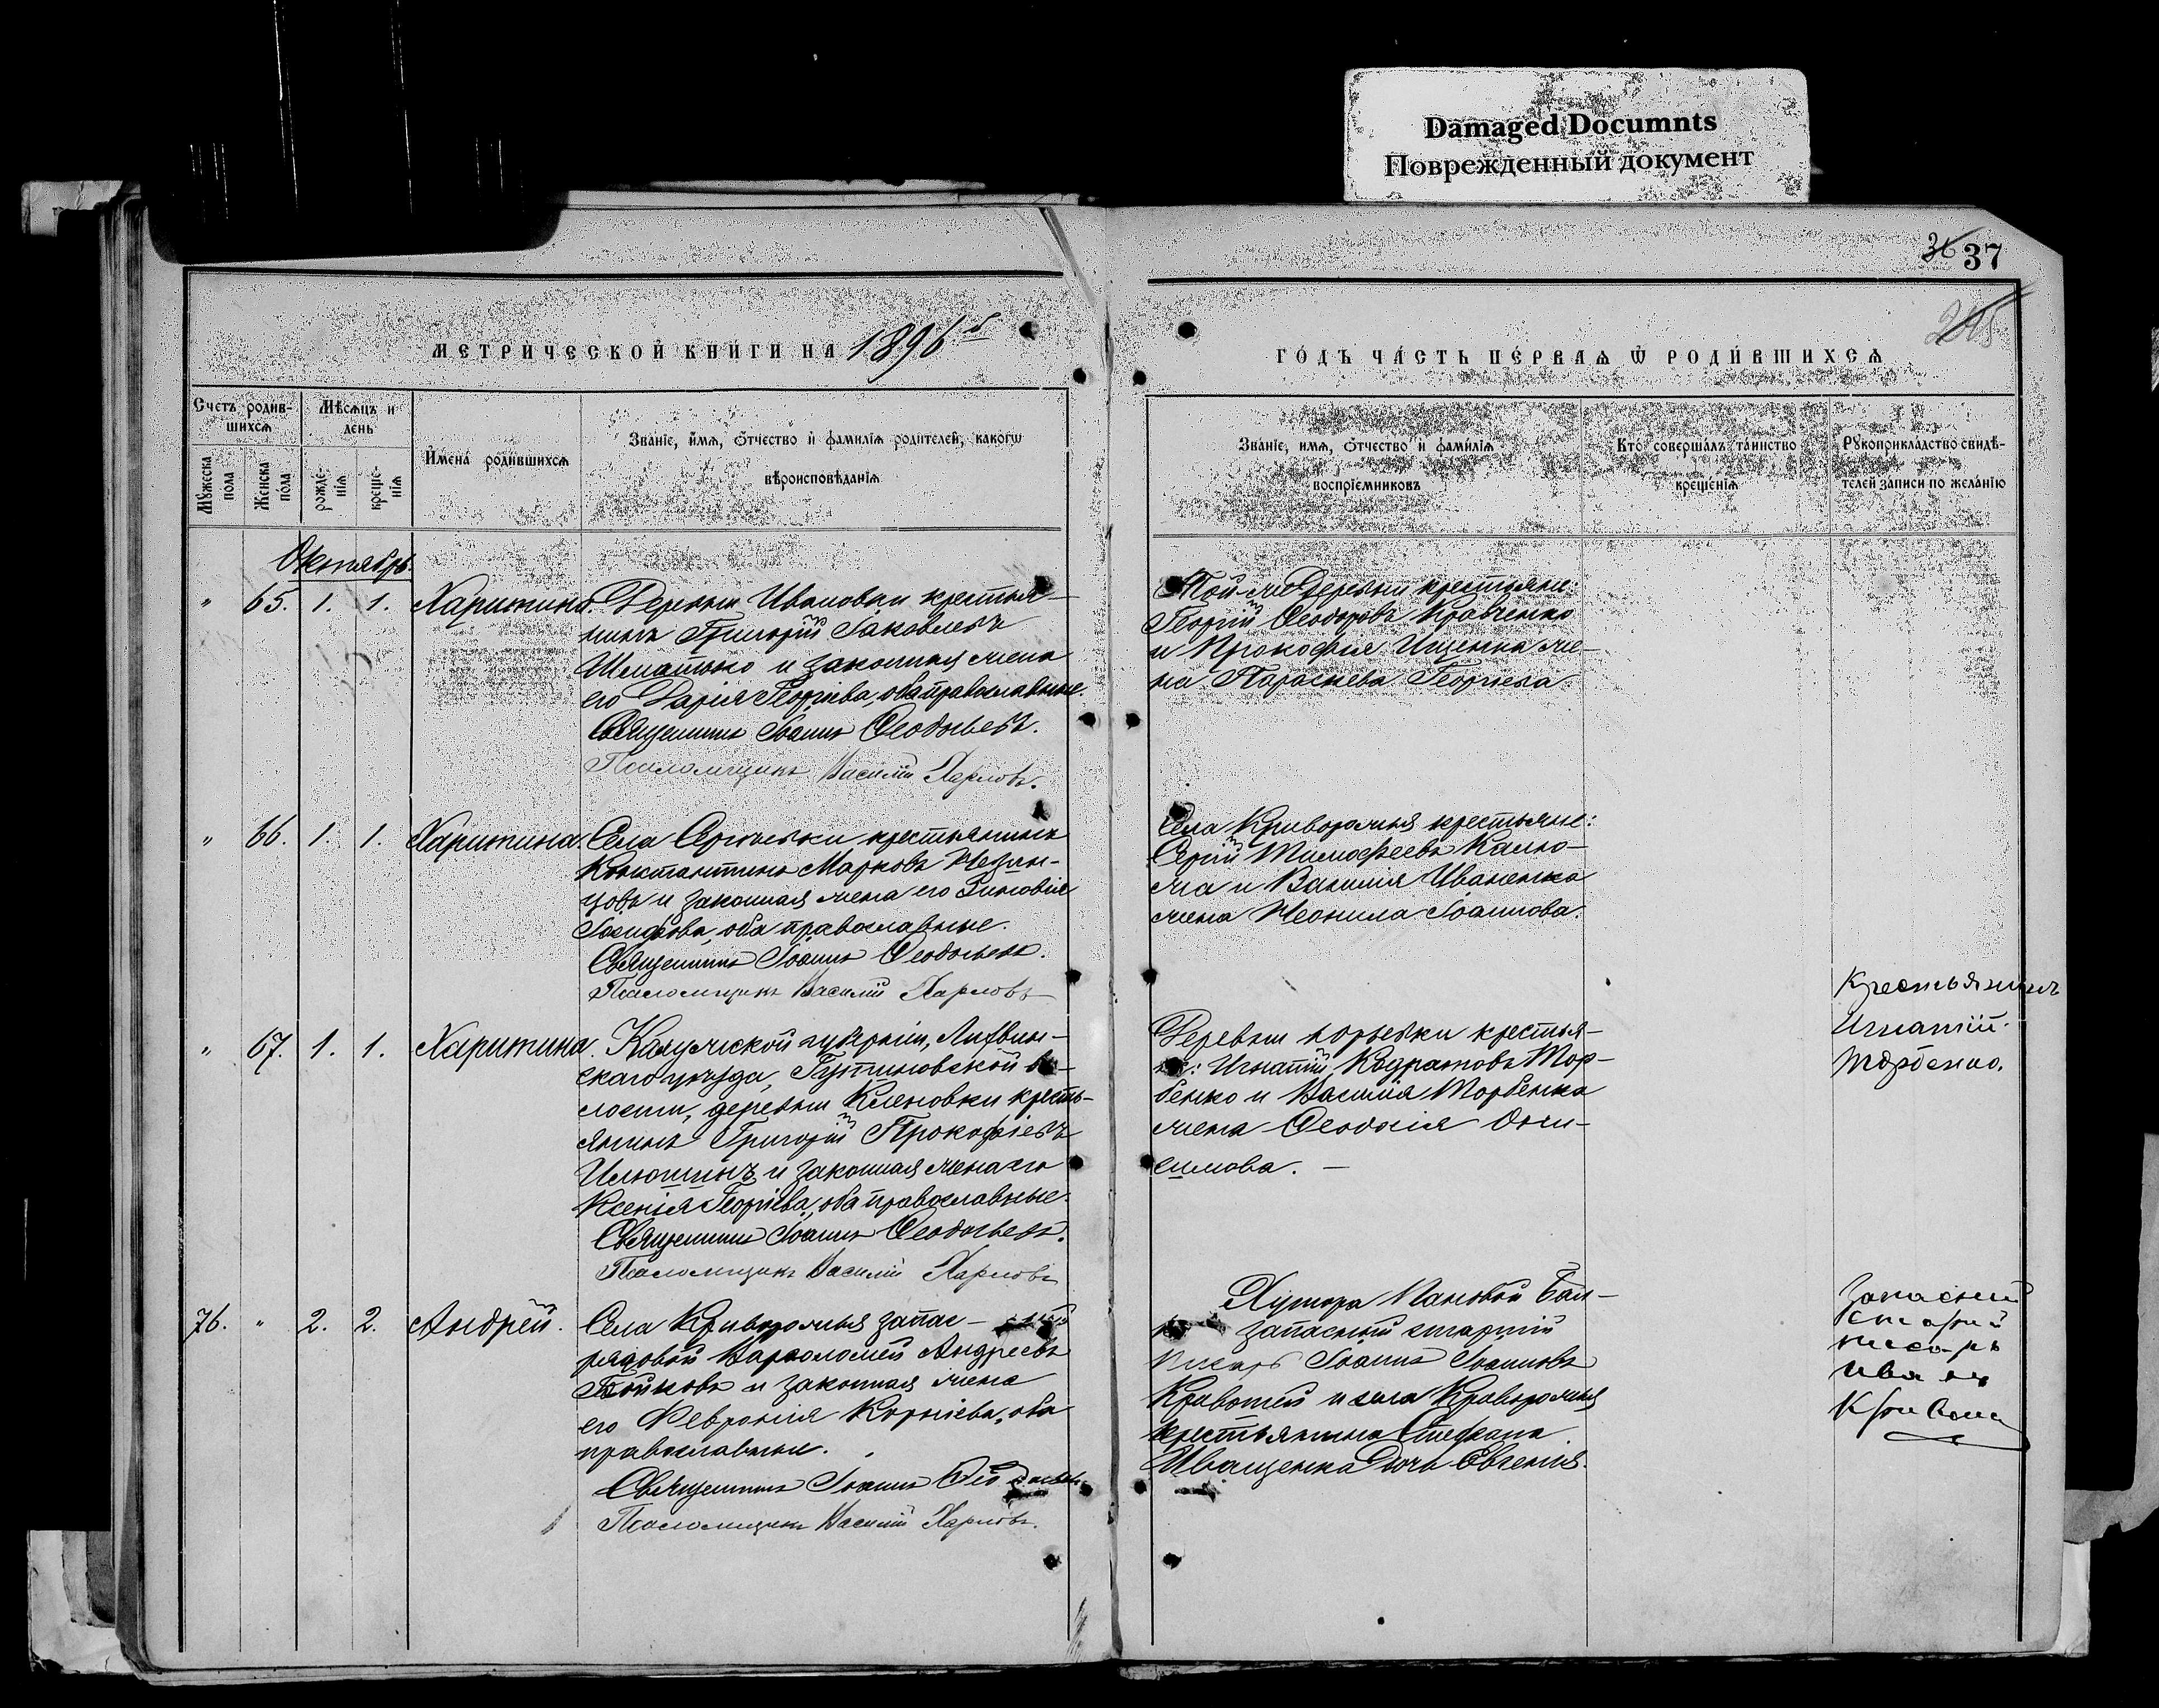 Damaged Documnts
Поврежденный документ
36 37
МЕТРИЧЕСКОЙ КНИГИ НА 1896й
ГОДЪ ЧАСТЬ ПЕРВАѦ Ѿ РОДИВШИХСѦ
Счетъ родив-
шихсѧ
Мѣсѧцъ и
день
Имена родившихсѧ
Званіе, имѧ, отчество и фамиліѧ родителей, какогѡ
вѣроисповѣданіѧ
Мужеска
пола
Женска
пола
рожде-
ніѧ
креще-
ніѧ
Званіе, имѧ, отчество и фамиліѧ
воспріемниковъ
Кто совершалъ таинство
крещеніѧ
Рукоприкладство свидѣ-
телей записи по желанію
Октябрь
" 65. 1. 1. Харитина. Деревни Ивановки крестья-
нинъ Григорій Іаковлевъ
и законная жена
его Дарія Георгіева, оба православные.
Священникъ Іоаннъ Ѳеодосьевъ.
Псаломщикъ Василій Карповъ.
Той-же Деревни крестьяне:
Георгій Ѳеодоровъ Кравченко
и Прокофія Ищенка же-
на Параскева Георгіева.
" 66. 1. 1. Харитина. Села крестьянинъ
Константинъ Марковъ
и законная жена его Зиновія
Іосифова, оба православные.
Священникъ Іоаннъ Ѳеодосьевъ.
Псаломщикъ Василій Карповъ
Села Криворожья крестьяне:
Сергій Тимоѳеевъ Калю-
жа и Василія Иваненка
жена Неонила Іоаннова.
" 67. 1. 1. Харитина. Калужской губерніи, Лихвин-
скаго уѣзда, во-
лости, деревни Кленовки кресть-
янинъ Григорій Прокофіевъ
Илюшинъ и законная жена его
Ксенія Георгіева, оба православные.
Священникъ Іоаннъ Ѳеодосьевъ.
Псаломщикъ Василій Карповъ
Деревни Юрьевки крестья-
не: Игнатій Кодратовъ Тор-
бенко и Василія Торбенка
жена Ѳеодосія Они-
симова. —
Крестьянинъ
Игнатій
Торбенко.
76. " 2. 2. Андрей. Села Криворожья запас-ный
рядовой Варѳоломей Андреевъ
Бойковъ и законная жена
его Февронія Корніева, оба
православные.
Священникъ Іоаннъ Ѳеодосьевъ.
Псаломщикъ Василій Карповъ.
Хутора Пановой Бал-
ки запасный старшій
писарь Іоаннъ Іоанновъ
и села Криворожья
крестьянина Стефана
Иващенка дочь Евгенія.
Запасный
писарь
Иванъ